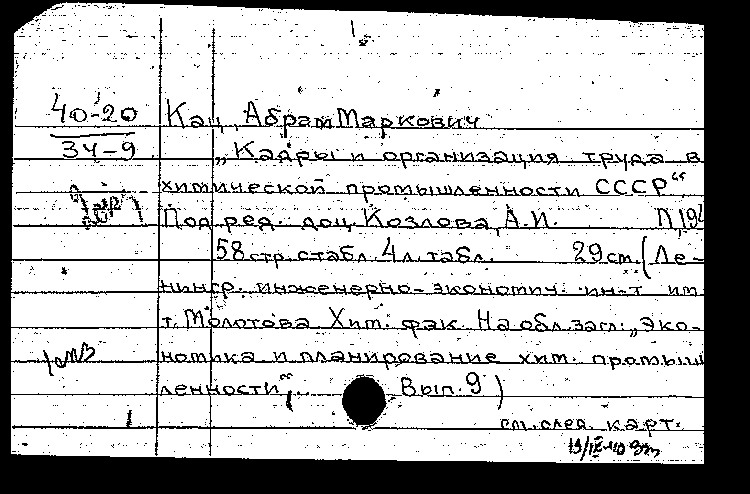 40-20
34-9
Кац, Абрам Маркович
„Кадры и организация труда в
химической промышленности СССР“
Под ред. доц. Козлова, А.И. Л, 194
58 стр. с табл. 4 л. табл. 29 см. (Ле-
нингр. инженерно-экономич. ин-т им
т. Молотова. Хим. фак. На обл. загл.: „Эко-
номика и планирование хим. промыш
ленности“, Вып. 9)
см. след. карт.